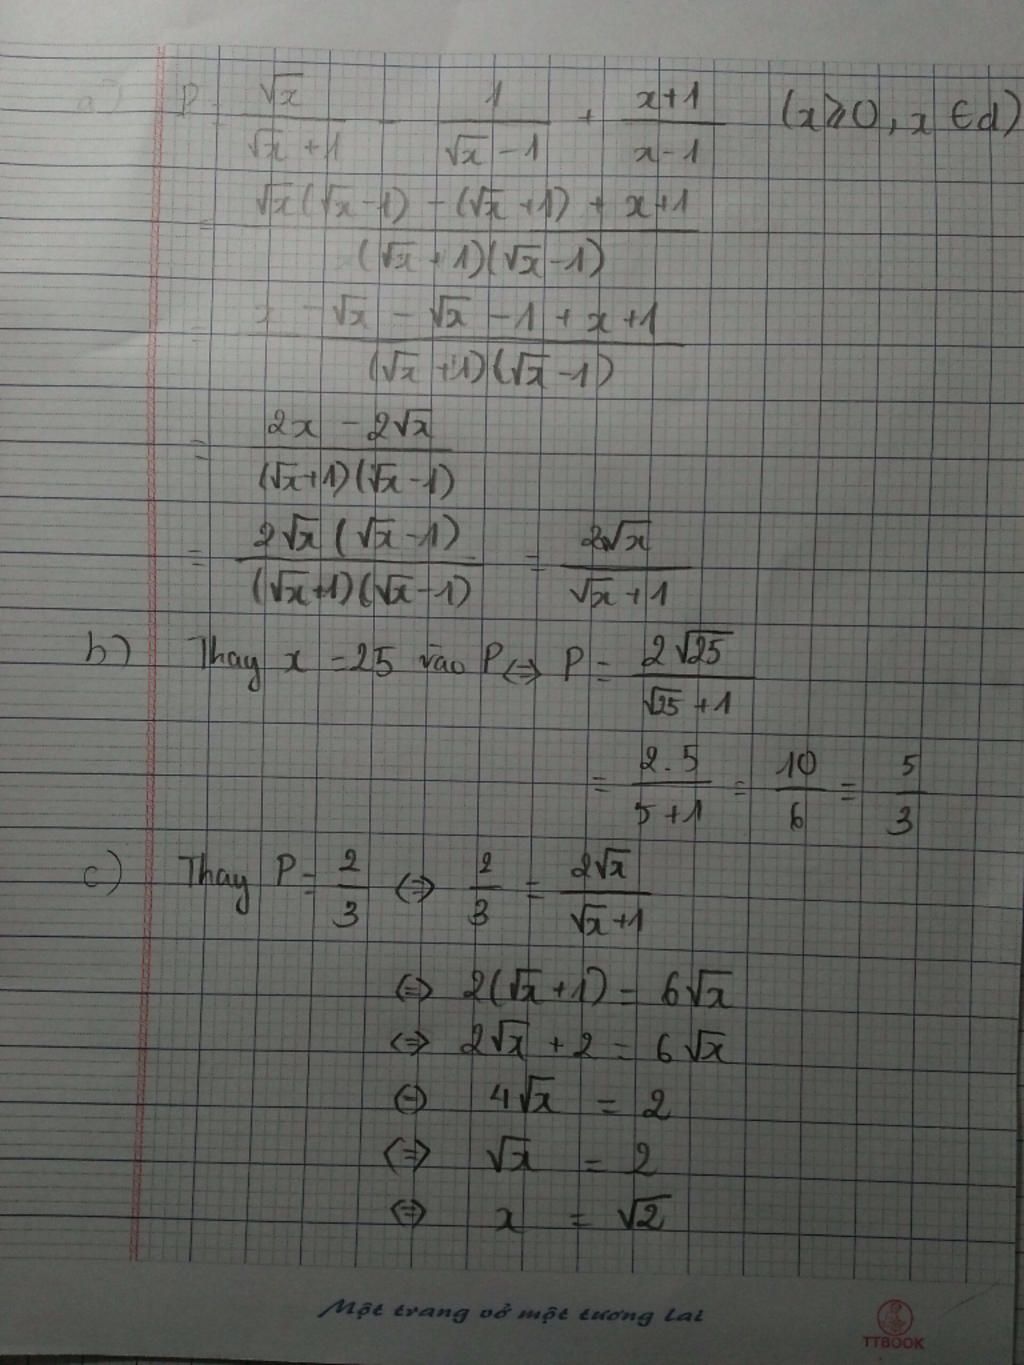 a) P = \frac{\sqrt{x}}{\sqrt{x}+1} - \frac{1}{\sqrt{x}-1} + \frac{x+1}{x-1} (x ⩾ 0, x ∈ d)
= \frac{\sqrt{x}(\sqrt{x}-1) - (\sqrt{x}+1) + x+1}{(\sqrt{x}+1)(\sqrt{x}-1)}
= \frac{x - \sqrt{x} - \sqrt{x} - 1 + x + 1}{(\sqrt{x}+1)(\sqrt{x}-1)}
= \frac{2x - 2\sqrt{x}}{(\sqrt{x}+1)(\sqrt{x}-1)}
= \frac{2\sqrt{x}(\sqrt{x}-1)}{(\sqrt{x}+1)(\sqrt{x}-1)} = \frac{2\sqrt{x}}{\sqrt{x}+1}
b) Thay x = 25 vào P ⇔ P = \frac{2\sqrt{25}}{\sqrt{25}+1}
= \frac{2.5}{5+1} = \frac{10}{6} = \frac{5}{3}
c) Thay P = \frac{2}{3} ⇔ \frac{2}{3} = \frac{2\sqrt{x}}{\sqrt{x}+1}
⇔ 2(\sqrt{x}+1) = 6\sqrt{x}
⇔ 2\sqrt{x} + 2 = 6\sqrt{x}
⇔ 4\sqrt{x} = 2
⇔ \sqrt{x} = 2
⇔ x = \sqrt{2}
Một trang vở một tương lai
TTBOOK